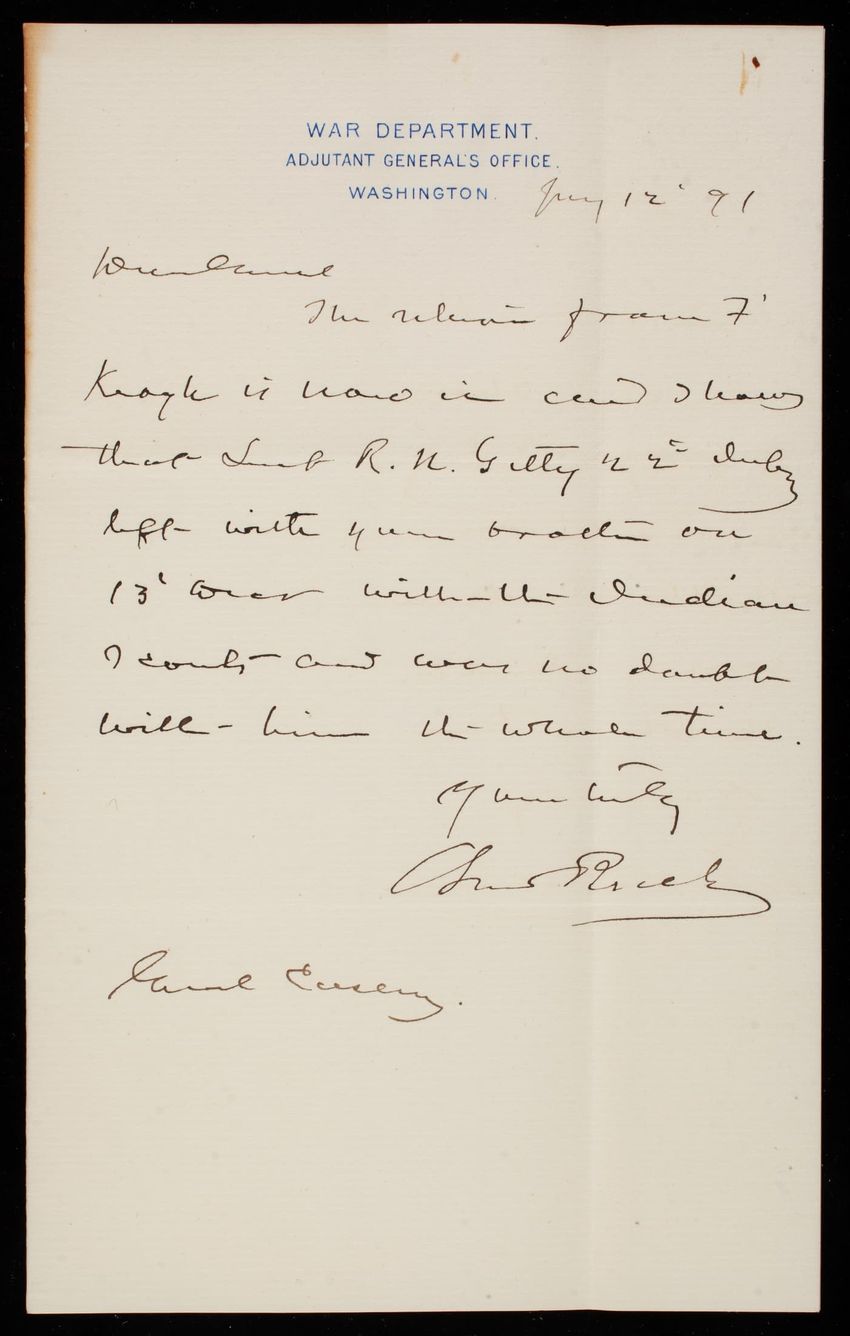 WAR DEPARTMENT.
ADJUTANT GENERAL'S OFFICE.
WASHINGTON.
Jany 12' 91
Dear Genrl
The return from Ft
Keogh is now in and shows
that Lieut R. N. Getty 22d Infty
left with your brother on
13' Decr with the Indian
Scouts and was no doubt
with him the whole time.
Yours truly
Genrl Casey.